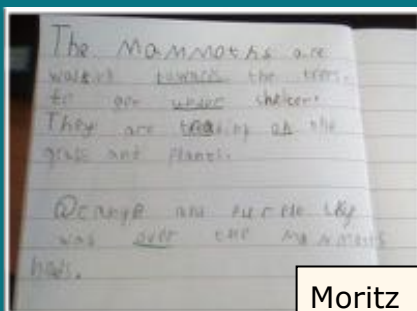 The Mammoths are
towards the trees.
to under shelter.
They are on the
grass and Plants.
Orange and Purple sky
was over the Mammoths
heds.
Moritz